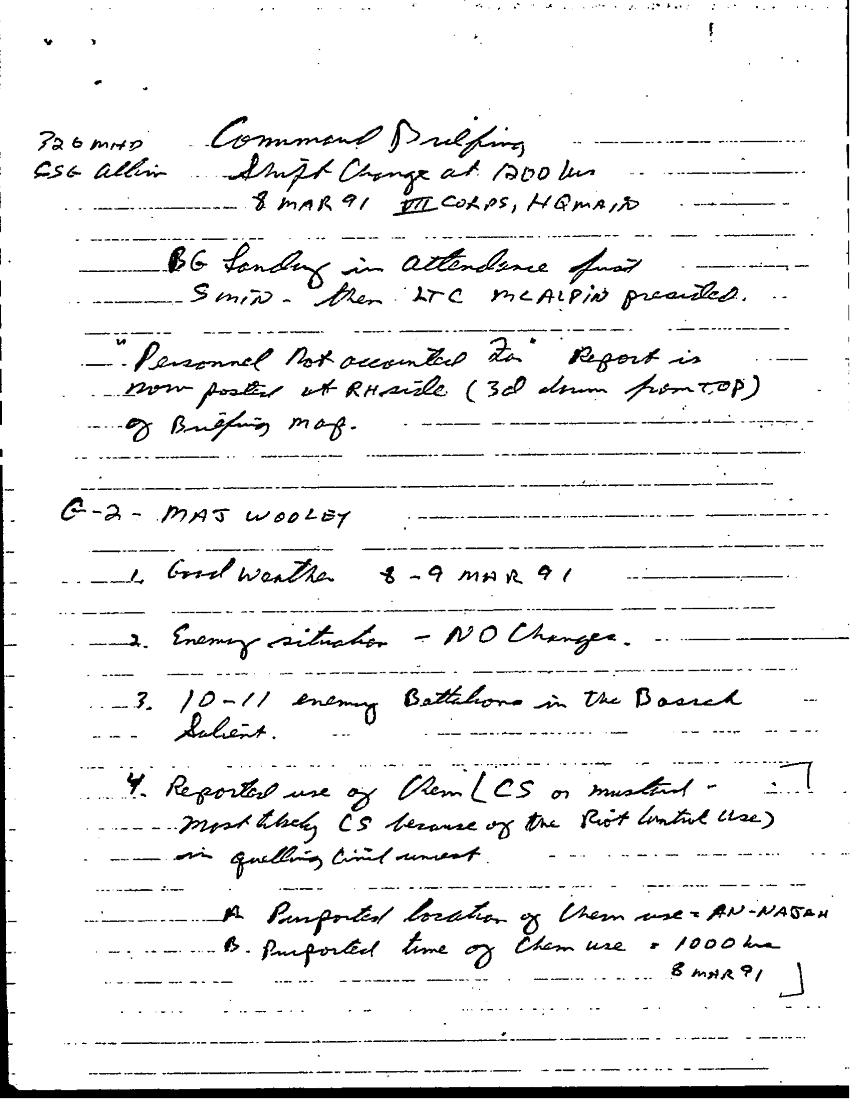 326 MHD Command Briefing
CSG Allin Shift Change at 1200 hrs
8 MAR 91 VII CORPS, HQ MAIN
BG Landry in attendance first
5 min - then LTC MCALPIN presided.
"Personnel Not accounted For" Report is
now posted at RH side (3d down from TOP)
of Briefing map.
G-2 - MAJ WOOLEY
1. Good Weather 8-9 MAR 91
2. Enemy situation - NO Changes.
3. 10-11 enemy Battalions in the Basrah
Salient.
4. Reported use of Chem (CS or mustard -
most likely CS because of the Riot Control Use)
in quelling civil unrest.
A. Purported location of Chem use = AN-NAJAH
B. Purported time of Chem use = 1000 hrs
8 MAR 91